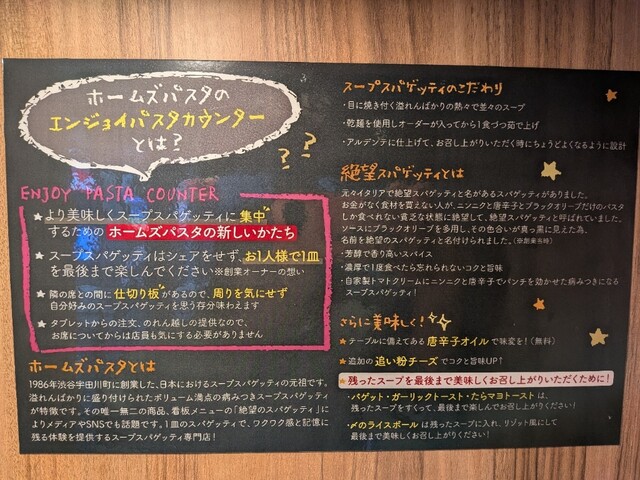 ホームズパスタの
エンジョイパスタカウンター
とは?
? ?
ENJOY PASTA COUNTER
★より美味しくスープスパゲッティに集中
するためのホームズパスタの新しいかたち
★スープスパゲッティはシェアをせず、お1人様で1皿
を最後まで楽しんでください※創業オーナーの想い
★隣の席との間に仕切り板があるので、周りを気にせず
自分好みのスープスパゲッティを思う存分味わえます
★タブレットからの注文、のれん越しの提供なので、
お席についてからは店員も気にする必要がありません
ホームズパスタとは
1986年渋谷宇田川町に創業した、日本におけるスープスパゲッティの元祖です。
溢れんばかりに盛り付けられたボリューム満点の病みつきスープスパゲッティ
が特徴です。その唯一無二の商品、看板メニューの「絶望のスパゲッティ」に
よりメディアやSNSでも話題です。1皿のスパゲッティで、ワクワク感と記憶に
残る体験を提供するスープスパゲッティ専門店!
スープスパゲッティのこだわり
・目に焼き付く溢れんばかりの熱々で並々のスープ
・乾麺を使用しオーダーが入ってから1食づつ茹で上げ
・アルデンテに仕上げて、お召し上がりいただく時にちょうどよくなるように設計
絶望スパゲッティとは
元々イタリアで絶望スパゲッティと名があるスパゲッティがありました。
お金がなく食材を買えない人が、ニンニクと唐辛子とブラックオリーブだけのパスタ
しか食べれない貧乏な状態に絶望して、絶望スパゲッティと呼ばれていました。
ソースにブラックオリーブを多用し、その色合いが真っ黒に見えた為、
名前を絶望のスパゲッティと名付けられました。(※創業当時)
・芳醇で香り高いスパイス
・濃厚で1度食べたら忘れられないコクと旨味
・自家製トマトクリームにニンニクと唐辛子でパンチを効かせた病みつきになる
スープスパゲッティ!
さらに美味しく!
★テーブルに備えてある唐辛子オイルで味変を!(無料)
★追加の追い粉チーズでコクと旨味UP↑
★残ったスープを最後まで美味しくお召し上がりいただくために!
・バゲット・ガーリックトースト・たらマヨトーストは、
残ったスープをすくって、最後まで楽しんでお召し上がりください!
・〆のライスボールは残ったスープに入れ、リゾット風にして
最後まで美味しくお召し上がりください!